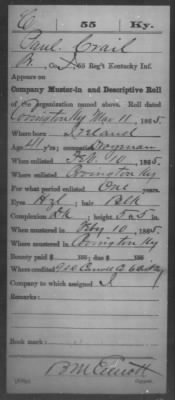 C 55 Ky.
Paul Crail
Co. , 55 Reg't Kentucky Inf.
Appears on
Company Muster-in and Descriptive Roll
of the organization named above. Roll dated
Covington Ky Mar 11, 1865.
Where born Ireland
Age 44 y'rs; occupation
When enlisted Feb 10, 1865.
Where enlisted Covington Ky
For what period enlisted One years.
Eyes Hzl; hair Blk
Complexion Dk; height 5 ft. 5 in.
When mustered in Feby 10, 1865.
Where mustered in Covington Ky
Bounty paid $ 100; due $ 100
Where credited Carroll Co
Company to which assigned
Remarks:
Book mark:
Copyist.